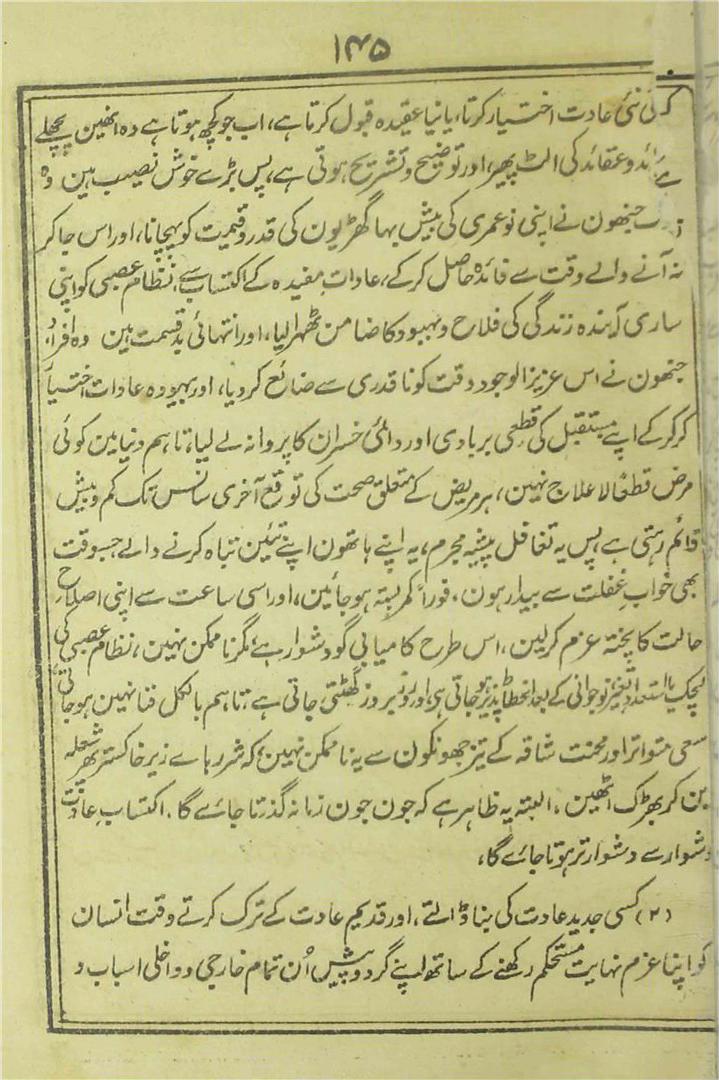 ۱۴۵
کوئی نئی عادت اختیار کرتا، یا نیا عقیدہ قبول کرتا ہے، اب جو کچھ ہوتا ہے وہ انھین پچھلے
وعقائد کی الٹ پھیر، اور توضیح و تشریح ہوتی ہے، پس بڑے خوش نصیب ہین وہ
جنھون نے اپنی نوعمری کی بیش بہا گھڑیون کی قدر و قیمت کو پہچانا، اور اس جاکر
نہ آنے والے وقت سے فائدہ حاصل کرکے، عادات مفیدہ کے اکتساب سے، نظام عصبی کو اپنی
ساری آیندہ زندگی کی فلاح و بہبود کا ضامن ٹھہرا لیا، اور انتہائی بدقسمت ہین وہ افراد
جنھون نے اس عزیز الوجود وقت کو ناقدری سے ضائع کردیا، اور بیہودہ عادات اختیار
کرکرکے اپنے مستقبل کی قطعی بربادی اور دائمی خسران کا پروانہ لے لیا، تاہم دنیا مین کوئی
مرض قطعًا لاعلاج نہین، ہر مریض کے متعلق صحت کی توقع آخری سانس تک کم و بیش
قائم رہتی ہے، پس یہ تغافل پیشہ مجرم، یہ اپنے ہاتھون اپنے تئین تباہ کرنے والے جسوقت
بھی خواب غفلت سے بیدار ہون، فورًا کمربستہ ہوجائین، اور اسی ساعت سے اپنی اصلاح
حالت کا پختہ عزم کرلین، اس طرح کامیابی گو دشوار ہے، مگر ناممکن نہین، نظام عصبی کی
لچک یا استعداد تغیر نوجوانی کے بعد انحطاط پذیر ہوجاتی ہے، اور روز بروز گھٹتی جاتی ہے، تاہم بالکل فنا نہین ہوجاتی
سعی متواتر اور محنت شاقہ کے تیز جھونکون سے یہ ناممکن نہین، کہ شررہاے زیر خاکستر پھر شعلہ
بن کر بھڑک اٹھین، البتہ یہ ظاہر ہے کہ جون جون زمانہ گذرتا جائے گا، اکتساب عادت
دشوار سے دشوار تر ہوتا جائے گا،
(۲) کسی جدید عادت کی بنا ڈالتے، اور قدیم عادت کے ترک کرتے وقت انسان
کو اپنا عزم نہایت مستحکم رکھنے کے ساتھ اپنے گرد و پیش اُن تمام خارجی و داخلی اسباب و